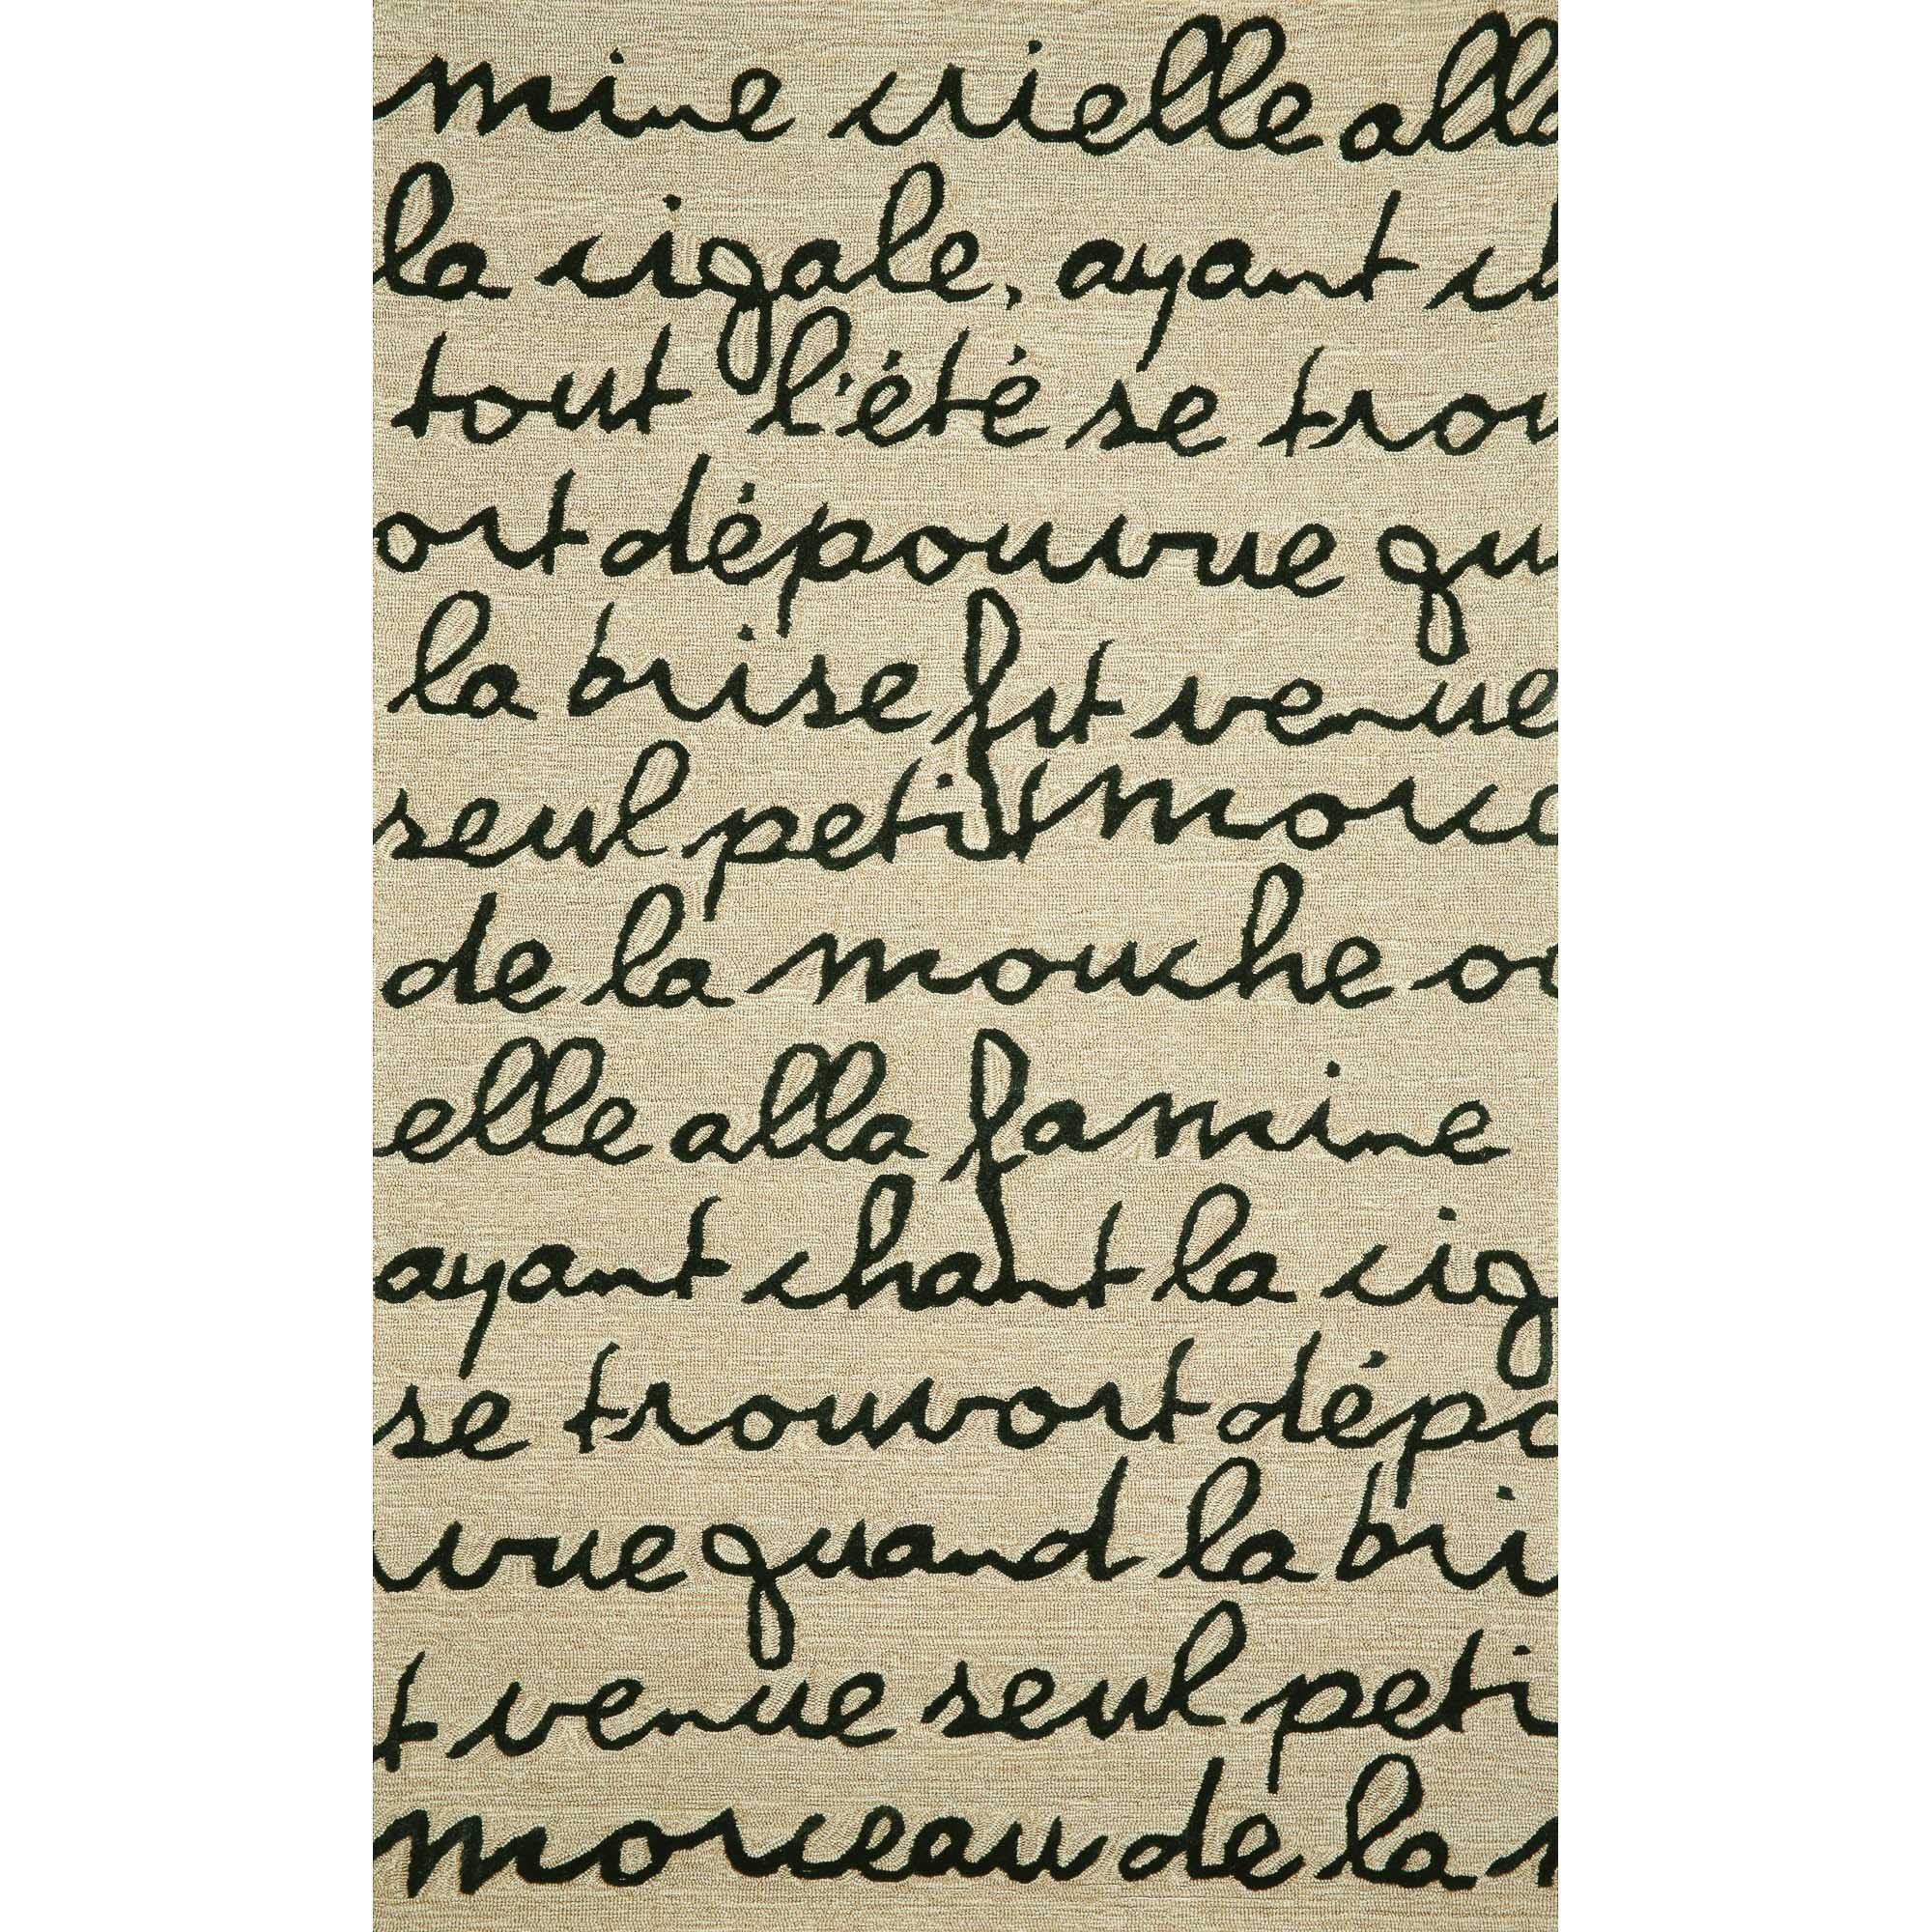 mine crielle alla
la cigale, ayant ch
tout l'été se trou
ort dépouvue qu
la brise fut venue
seul petit morc
de la mouche ou
elle alla famine
ayant chant la cig
se trouvort dépo
uvue quand la bri
t venue seul peti
morceau de la m